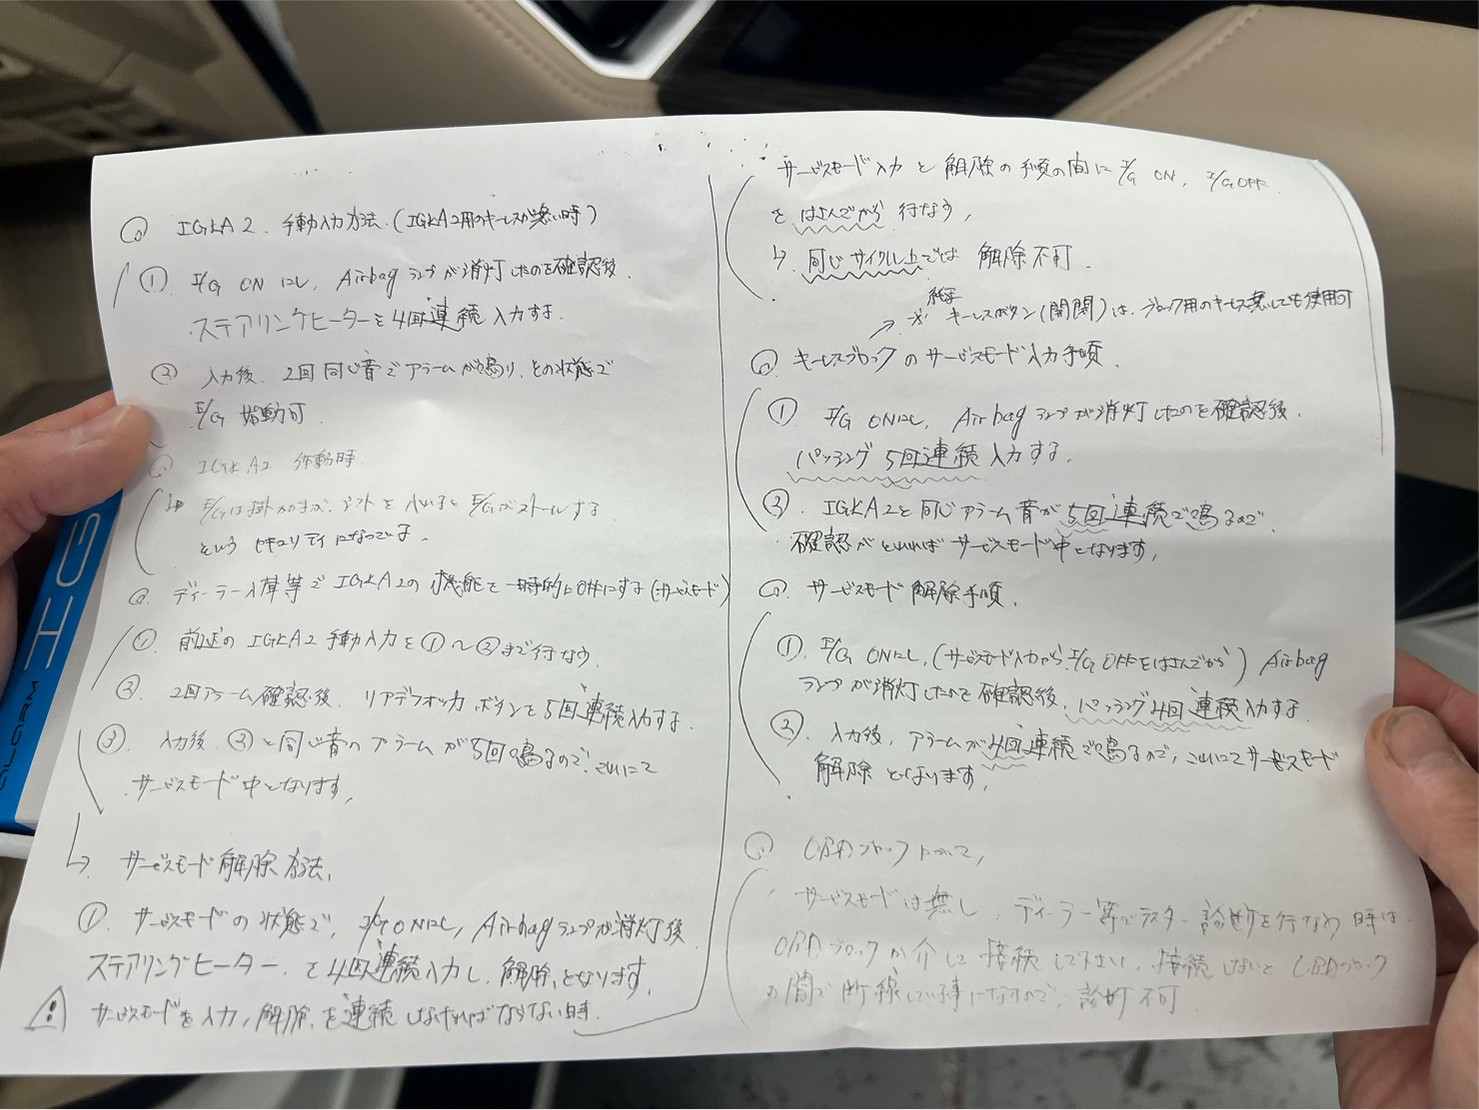 ◎ IGLA2 手動入力方法.(IGLA2用のキーレスが無い時)
① E/G ONにし, Airbagランプが消灯したのを確認後.
ステアリングヒーターを4回連続入力する.
② 入力後. 2回同じ音でアラームが鳴り, その状態で
E/G 始動可
◎ IGLA2 作動時.
↳ E/Gは掛かるが, シフトを入れるとE/Gがストールする
というセキュリティになってます.
◎. ディーラー入庫等でIGLA2の機能を一時的にOFFにする(サービスモード)
① 前述のIGLA2手動入力を①〜②まで行なう.
② 2回アラーム確認後. リアデフォッガボタンを5回連続入力する.
③. 入力後. ②と同じ音のアラームが5回鳴るので, これにて
サービスモード中となります,
↳ サービスモード解除方法,
①. サービスモードの状態で, E/G ONにし, Airbagランプが消灯後
ステアリングヒーター を4回連続入力し, 解除,となります,
⚠ サービスモードを入力, 解除を連続しなければならない時.
サービスモード入力と解除の手順の間にE/G ON, E/G OFF
をはさんでから行なう,
↳ 同じサイクル上では 解除不可.
※ キーレスボタン(開閉)は, ブロック用のキーレス無しでも使用可
◎ キーレスブロックのサービスモード入力手順.
① E/G ONにし, Airbagランプが消灯したのを確認後.
パッシング5回連続入力する.
② IGLA2と同じアラーム音が5回連続で鳴るので.
確認がとれればサービスモード中となります,
◎. サービスモード解除手順.
①. E/G ONにし, (サービスモード入力からE/G OFFをはさんでから) Airbag
ランプが消灯したのを確認後, パッシング4回連続入力する
②. 入力後, アラームが4回連続で鳴るので, これにてサービスモード
解除となります,
◎ OBDブロックについて,
サービスモードは無し, ディーラー等でテスター診断を行なう時は.
OBDブロックを介して接続して下さい, 接続しないとOBDブロック
の間で断線している事になるので, 診断不可
ALARM